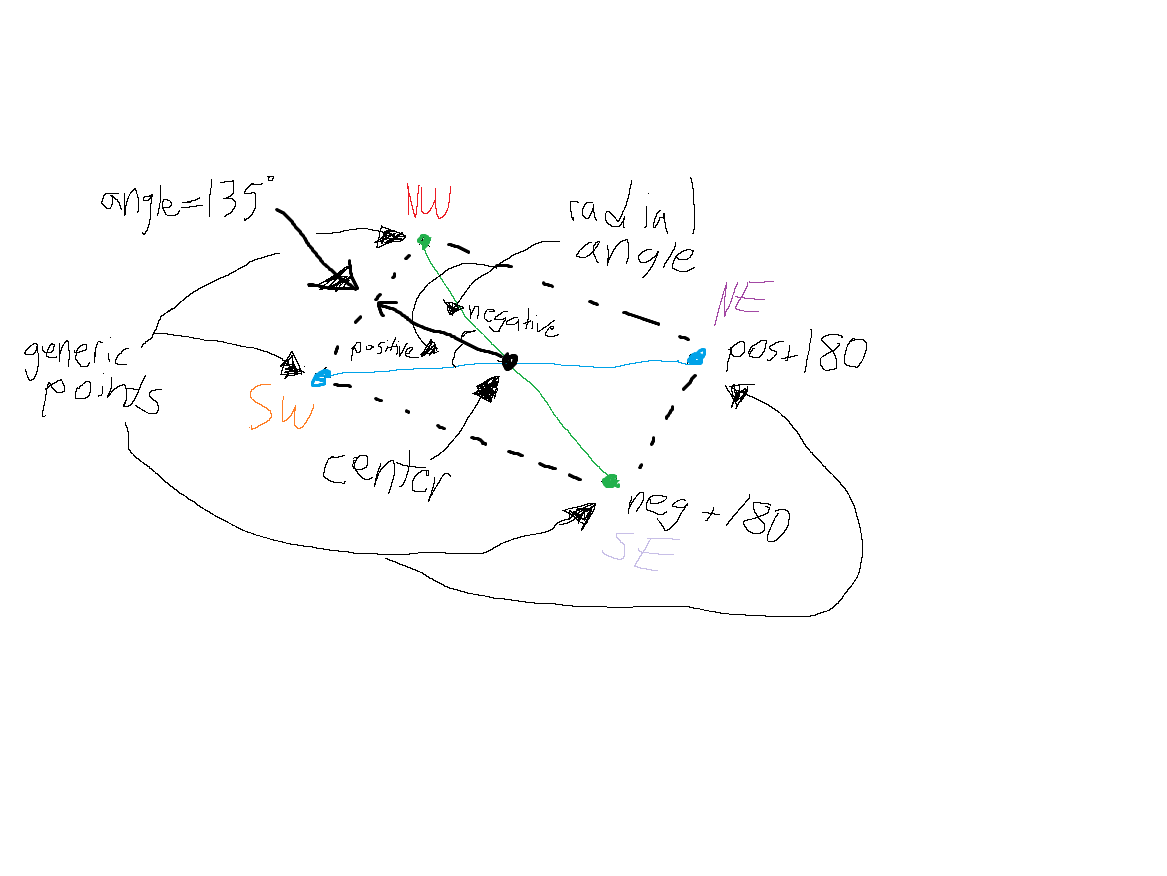 angle=135°
NW
radial
angle
NE
negative
positive
pos+180
generic
points
SW
center
neg+180
SE